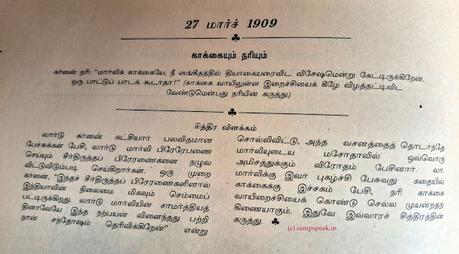 27 மார்ச் 1909
காக்கையும் நரியும்
கர்ஸன் நரி: "மார்லிக் காக்கையே, நீ ஸங்கீதத்தில் தியாகையரைவிட விசேஷமென்று கேட்டிருக்கிறேன்.
ஒரு பாட்டுப் பாடக் கூடாதா?" (காக்கை வாயிலுள்ள இறைச்சியைக் கீழே விழத்தட்டிவிட
வேண்டுமென்பது நரியின் கருத்து.)
சித்திர விளக்கம்
லார்டு கர்ஸன் கட்சியார் பலவிதமான
பேச்சுக்கள் பேசி, லார்டு மார்லி பிரேரேபணை
செய்யும் சீர்திருத்தப் பிரேரணைகளை நழுவ
விட்டுவிடும்படி செய்கிறார்கள். ஒரு முறை
கர்ஸன், "இந்தச் சீர்திருத்தப் பிரேரணைகளினால்
இந்தியாவின் நிலைமை மிகவும் செம்மைப்
பட்டிருக்கிறது. லார்டு மார்லியின் சாமர்த்தியத்
தினாலேயே இந்த நற்பயன் விளைந்தது பற்றி
நான் சந்தோஷம் தெரிவிக்கிறேன்" என்று
சொல்லிவிட்டு, அந்த வசனத்தைத் தொடர்ந்தே
மார்லியுடைய மசோதாவில் ஒவ்வொரு
அம்சத்துக்கும் விரோதம் பேசினார். லா.
மார்லிக்கு இவர் புகழ்ச்சி பேசுவது கதையில்
காக்கைக்கு இச்சகம் பேசி, நரி காக்கை
வாயிறைச்சியைக் கொண்டு செல்ல முயன்றதற்
கிணையாகும். இதுவே இவ்வாரச் சித்திரத்தின்
கருத்து.
(c) sampspeak.in